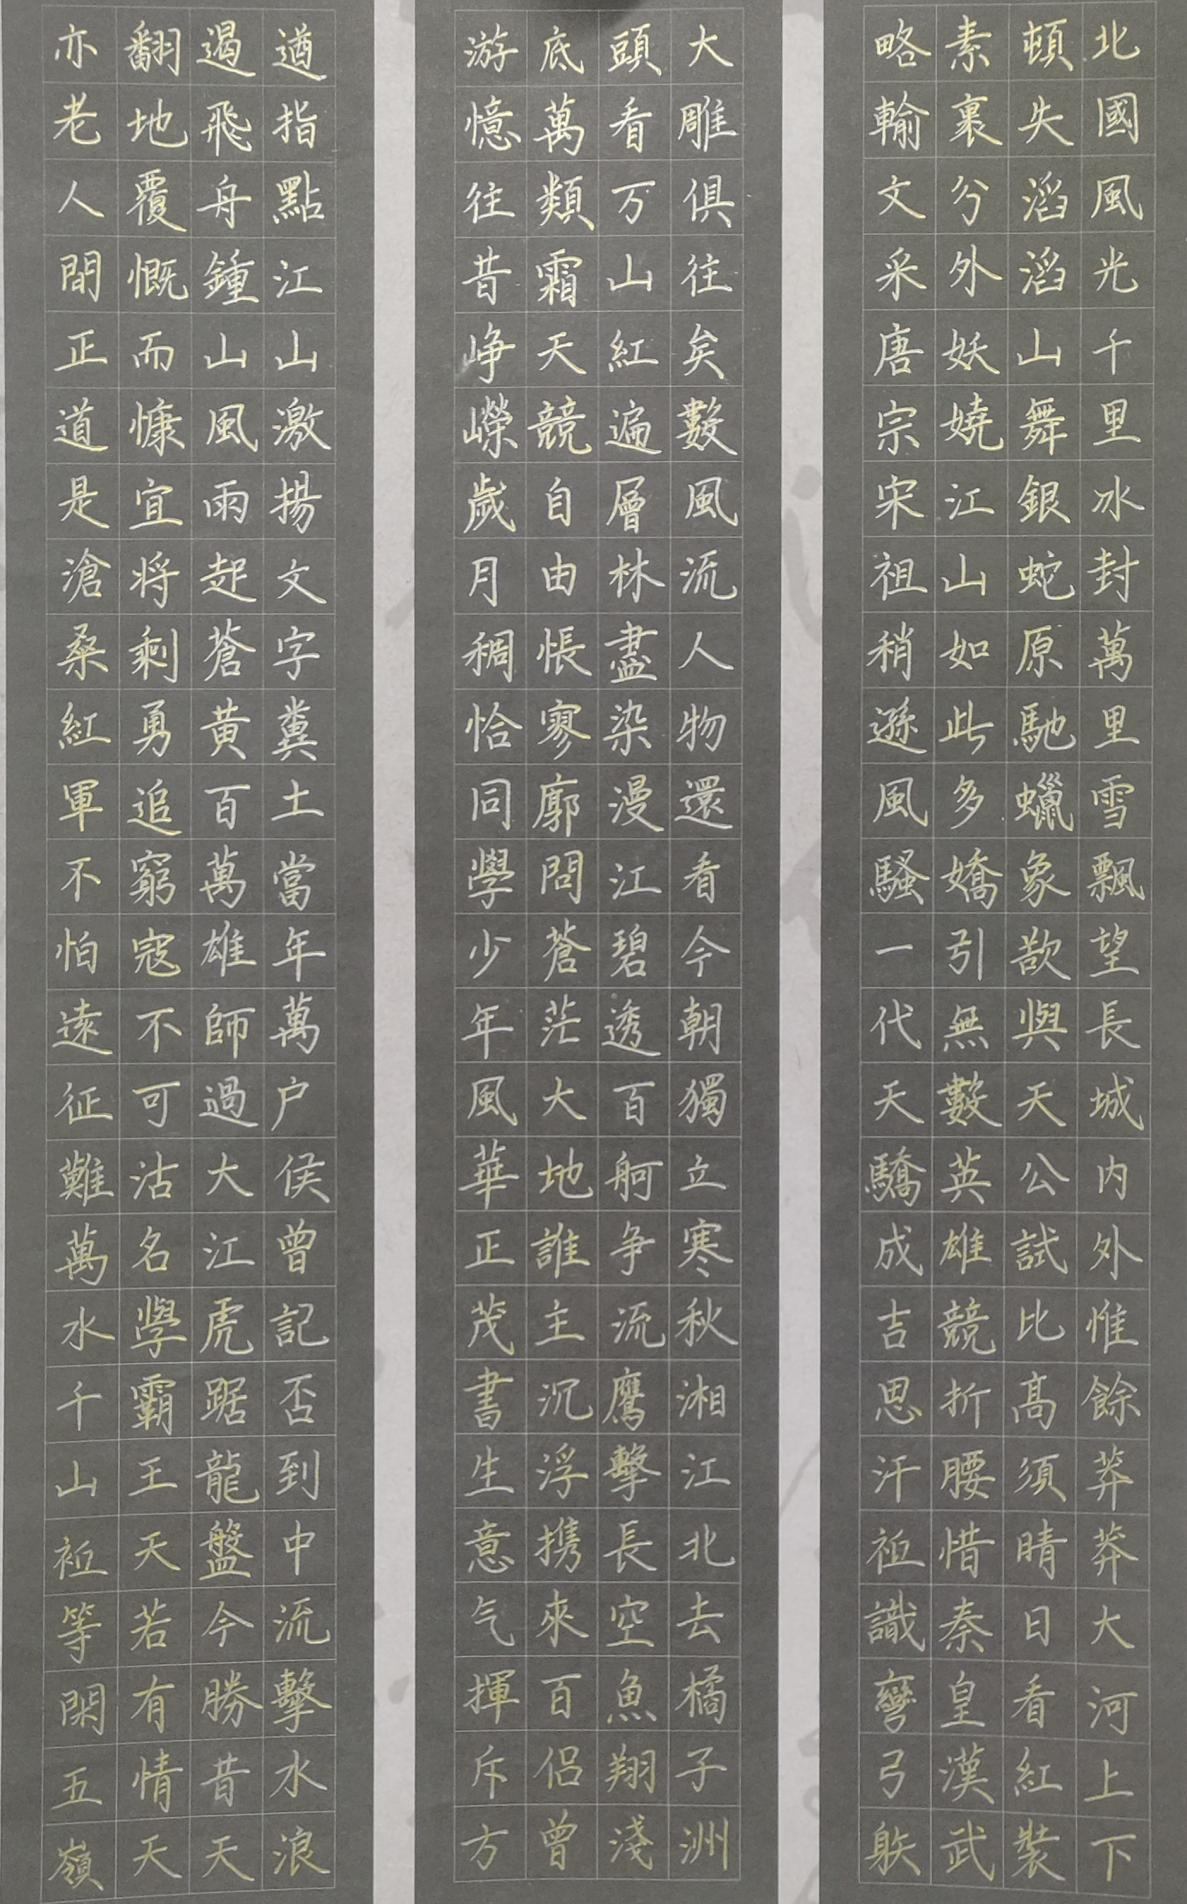 北國風光千里冰封萬里雪飄望長城内外惟餘莽莽大河上下
頓失滔滔山舞銀蛇原馳蠟象欲與天公試比高須晴日看紅裝
素裹分外妖嬈江山如此多嬌引無數英雄競折腰惜秦皇漢武
略輸文采唐宗宋祖稍遜風騷一代天驕成吉思汗祗識彎弓䠶
大雕俱往矣數風流人物還看今朝獨立寒秋湘江北去橘子洲
頭看万山紅遍層林盡染漫江碧透百舸争流鷹擊長空魚翔淺
底萬類霜天競自由悵寥廓問蒼茫大地誰主沉浮携來百侣曾
游憶往昔峥嶸歲月稠恰同學少年風華正茂書生意气揮斥方
遒指點江山激揚文字糞土當年萬户侯曾記否到中流擊水浪
遏飛舟鍾山風雨起蒼黄百萬雄師過大江虎踞龍盤今勝昔天
翻地覆慨而慷宜将剩勇追窮寇不可沽名學霸王天若有情天
亦老人間正道是滄桑紅軍不怕遠征難萬水千山祗等閑五嶺